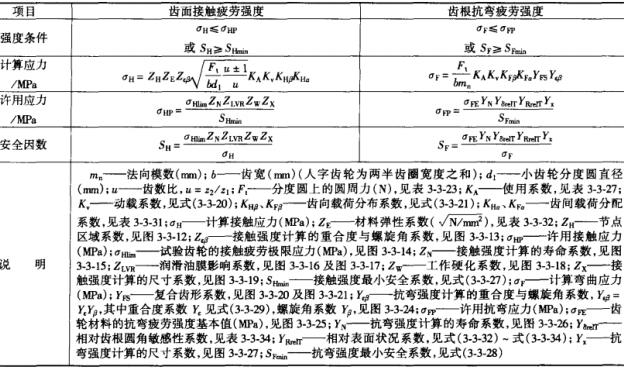 项目 齿面接触疲劳强度 齿根抗弯疲劳强度
强度条件 σH≤σHP 或 SH≥SHmin σF≤σFP 或 SF≥SFmin
计算应力/MPa σH=ZHZEZεβ√(Ft/bd1 · (u±1)/u · KAKvKHβKHα) σF=Ft/bmn KAKvKFβKFαYFSYεβ
许用应力/MPa σHP=σHlimZNZLVRZWZX/SHmin σFP=σFEYNYδrelTYRrelTYx/SFmin
安全因数 SH=σHlimZNZLVRZWZX/σH SF=σFEYNYδrelTYRrelTYx/σF
说 明
mn——法向模数(mm); b——齿宽(mm)(人字齿轮为两半齿圈宽度之和); d1——小齿轮分度圆直径
(mm); u——齿数比, u=z2/z1; Ft——分度圆上的圆周力(N), 见表3-3-23; KA——使用系数, 见表3-3-27;
Kv——动载系数, 见式(3-3-20); KHβ、KFβ——齿向载荷分布系数, 见式(3-3-21); KHα、KFα——齿间载荷分配
系数, 见表3-3-31; σH——计算接触应力(MPa); ZE——材料弹性系数(√N/mm²), 见表3-3-32; ZH——节点
区域系数, 见图3-3-12; Zεβ——接触强度计算的重合度与螺旋角系数, 见图3-3-13; σHP——许用接触应
力(MPa); σHlim——试验齿轮的接触疲劳极限应力(MPa), 见图3-3-14; ZN——接触强度计算的寿命系数, 见图
3-3-15; ZLVR——润滑油膜影响系数, 见图3-3-16及图3-3-17; ZW——工作硬化系数, 见图3-3-18; ZX——接
触强度计算的尺寸系数, 见图3-3-19; SHmin——接触强度最小安全系数, 见式(3-3-27); σF——计算弯曲应力
(MPa); YFS——复合齿形系数, 见图3-3-20及图3-3-21; Yεβ——抗弯强度计算的重合度与螺旋角系数, Yεβ=
YεYβ, 其中重合度系数Yε见式(3-3-29), 螺旋角系数Yβ, 见图3-3-24; σFP——许用抗弯应力(MPa); σFE——齿
轮材料的抗弯疲劳强度基本值(MPa), 见图3-3-25; YN——抗弯强度计算的寿命系数, 见图3-3-26; YδrelT——
相对齿根圆角敏感性系数, 见表3-3-34; YRrelT——相对表面状况系数, 见式(3-3-32)~式(3-3-34); Yx——抗
弯强度计算的尺寸系数, 见图3-3-27; SFmin——抗弯强度最小安全系数, 见式(3-3-28)